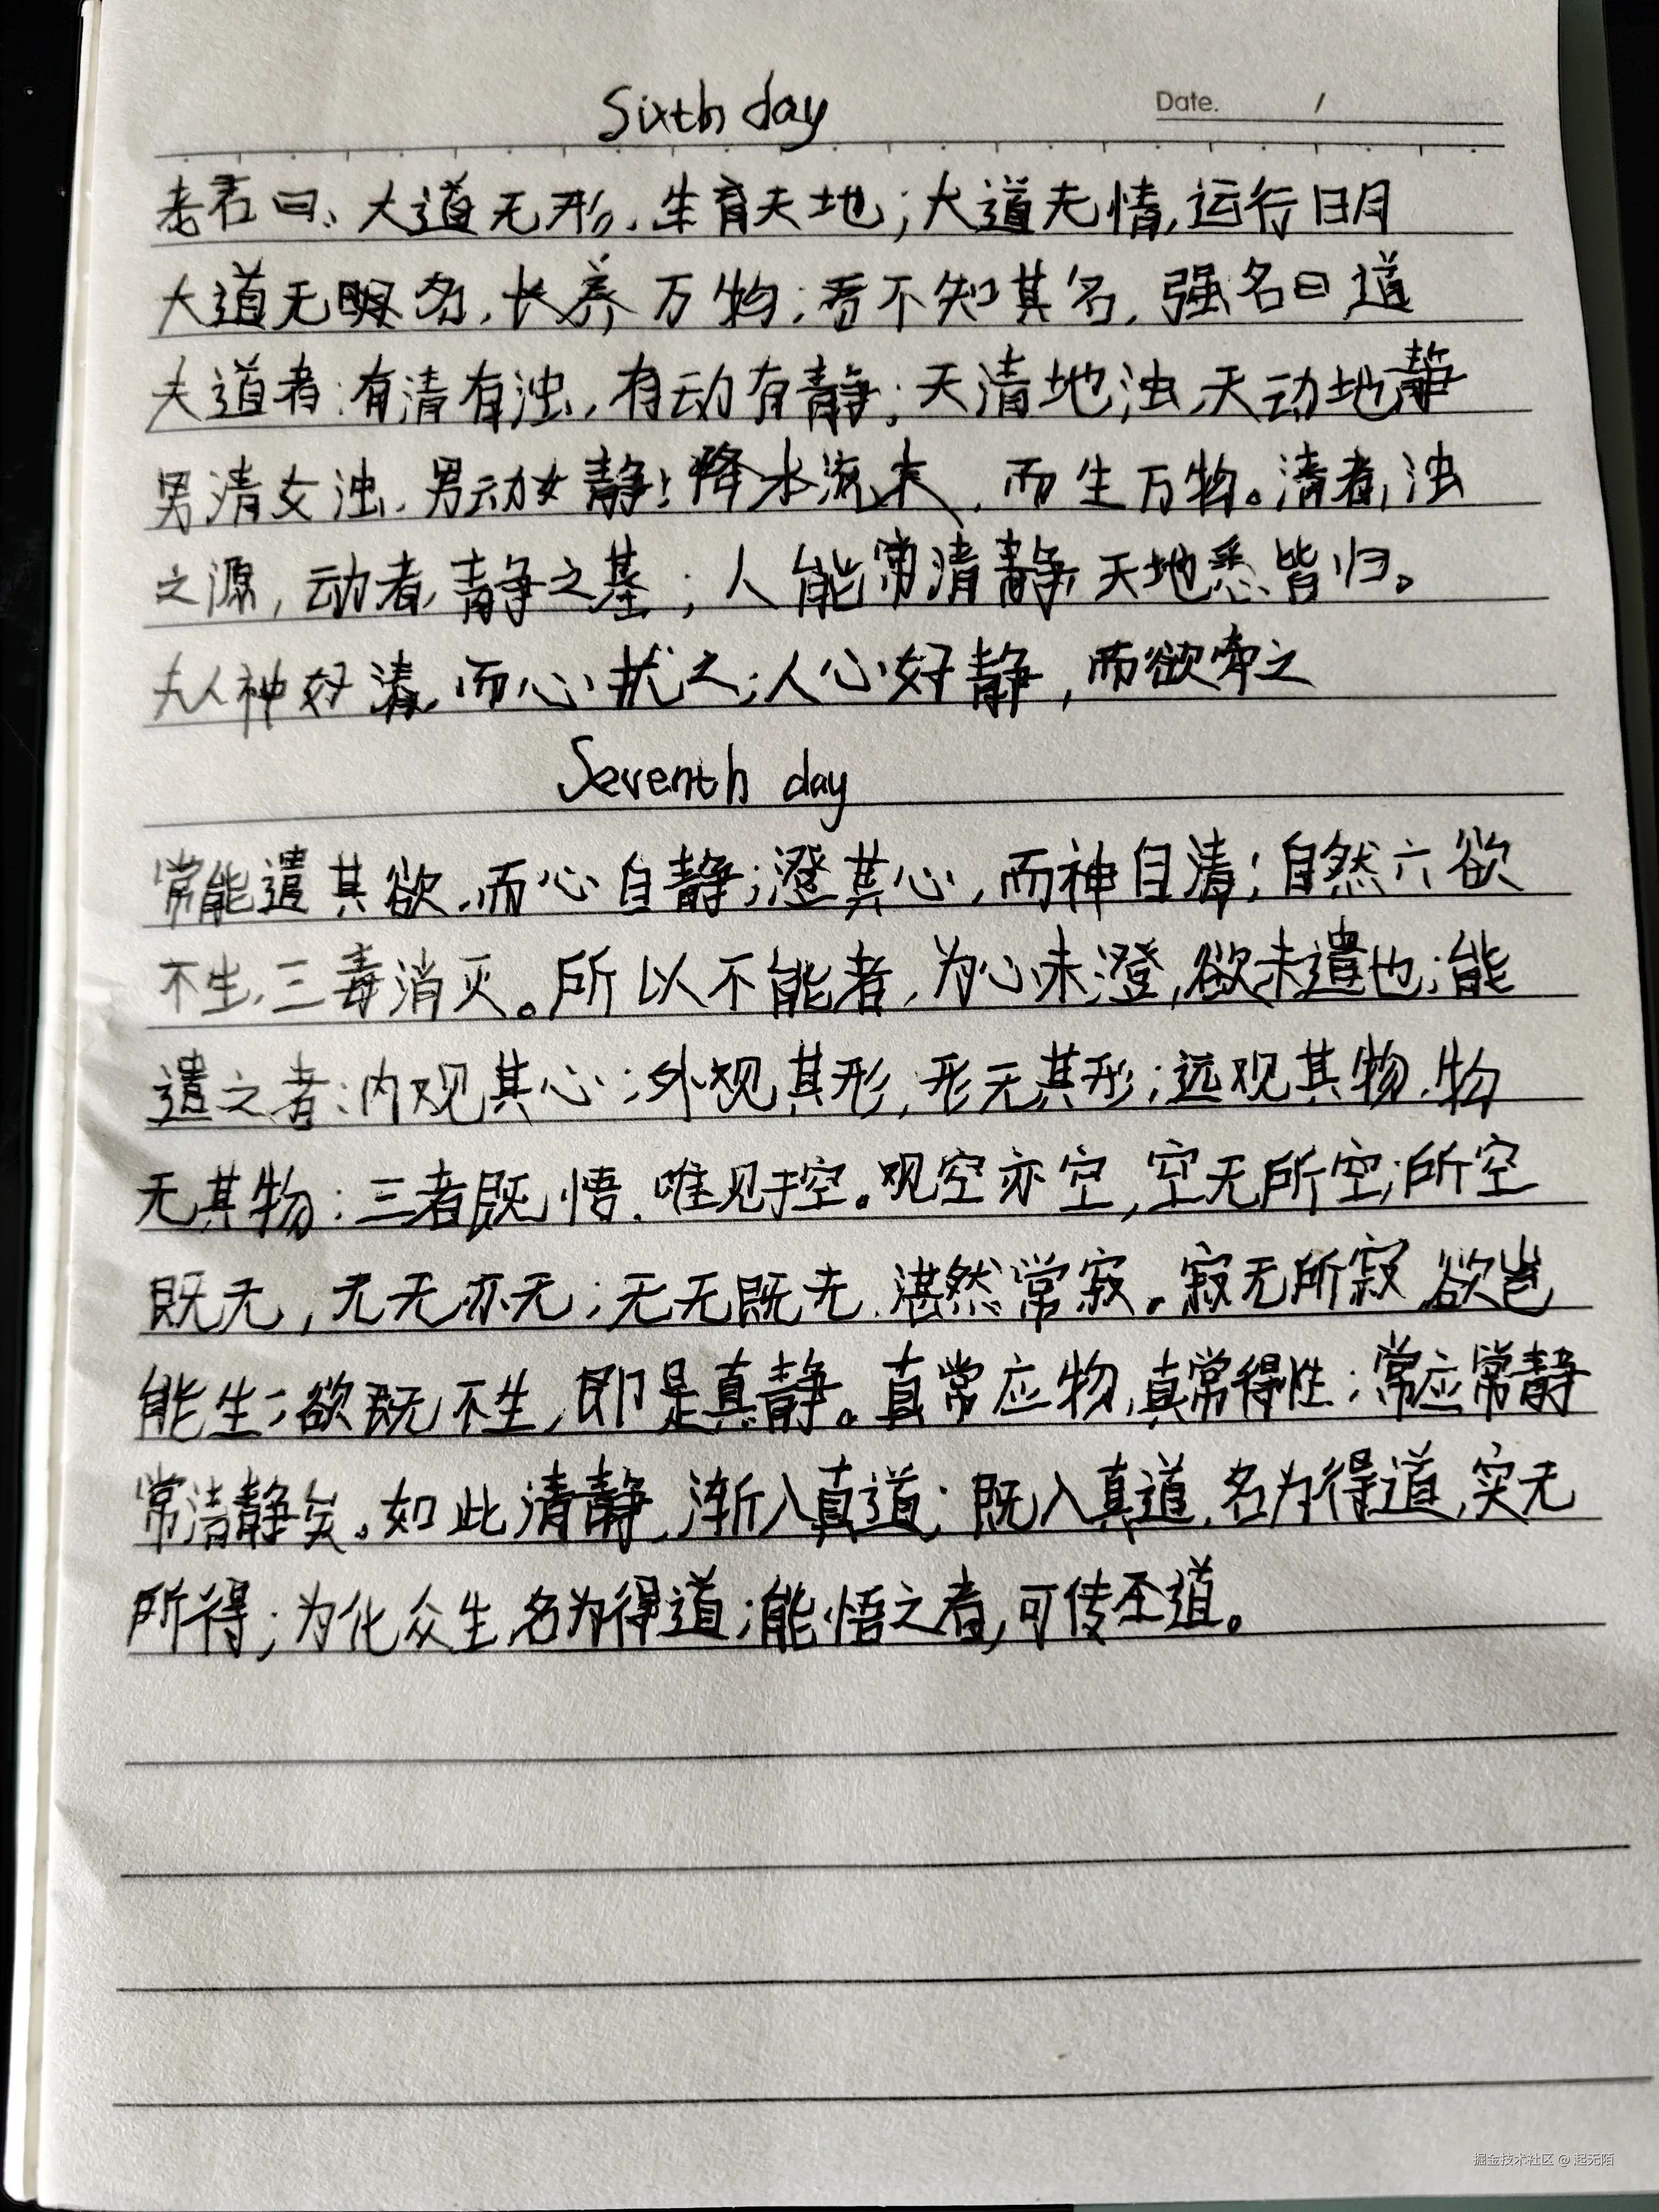 Sixth day
Date. /
老君曰、大道无形，生育天地；大道无情，运行日月
大道无名，长养万物；吾不知其名，强名曰道
夫道者：有清有浊，有动有静；天清地浊，天动地静
男清女浊，男动女静；降本流末，而生万物。清者，浊
之源，动者，静之基；人能常清静，天地悉皆归。
夫人神好清，而心扰之；人心好静，而欲牵之
Seventh day
常能遣其欲，而心自静；澄其心，而神自清；自然六欲
不生，三毒消灭。所以不能者，为心未澄，欲未遣也；能
遣之者：内观其心；外观其形，形无其形；远观其物，物
无其物；三者既悟，唯见于空。观空亦空，空无所空；所空
既无，无无亦无；无无既无，湛然常寂。寂无所寂，欲岂
能生；欲既不生，即是真静。真常应物，真常得性；常应常静
常清静矣。如此清静，渐入真道；既入真道，名为得道，实无
所得；为化众生，名为得道；能悟之者，可传圣道。
掘金技术社区 @ 起无陌